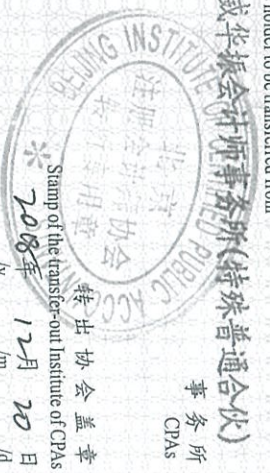 holder to be transferred from
威华振会计师事务所(特殊普通合伙)
事务所
CPAs
BEIJING INSTITUTE
PUBLIC
北京
注册会计师协会
转所专用章
转出协会盖章
Stamp of the transfer-out Institute of CPAs
2018年 12月 20日
/y /m /d